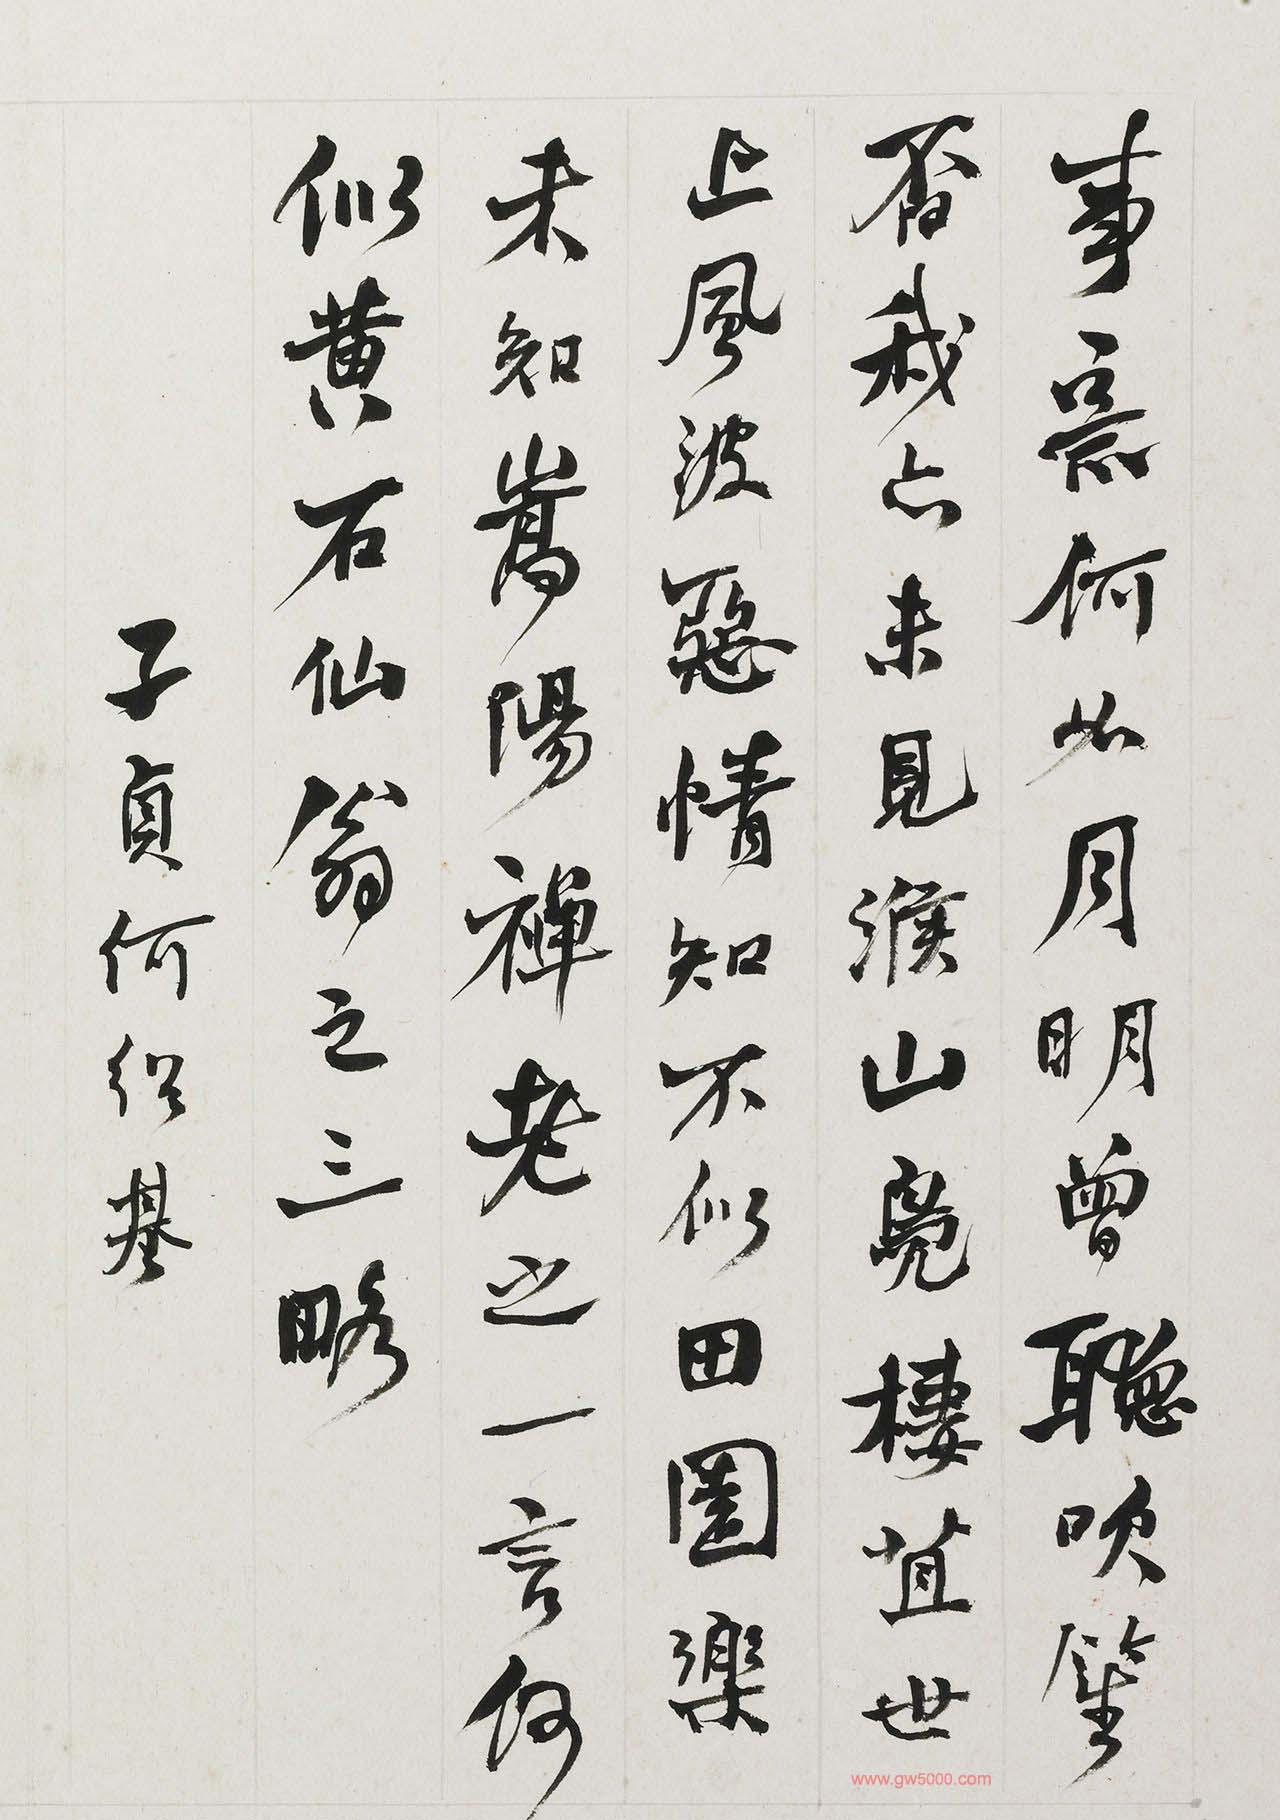 事何如月明曾聽吹笙
否我亦未見緱山鳧棲苴世
上風波惡情知不似田園樂
未知嵩陽禪老之一言何
似黃石仙翁之三略
子貞何紹基
www.gw5000.com